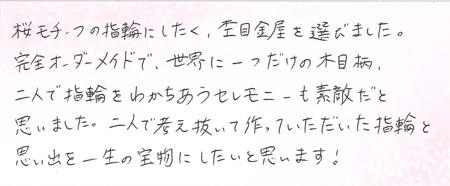 桜モチーフの指輪にしたく、杢目金屋を選びました。
完全オーダーメイドで、世界に一つだけの木目柄、
二人で指輪をわかちあうセレモニーも素敵だと
思いました。二人で考え抜いて作っていただいた指輪と
思い出を一生の宝物にしたいと思います!